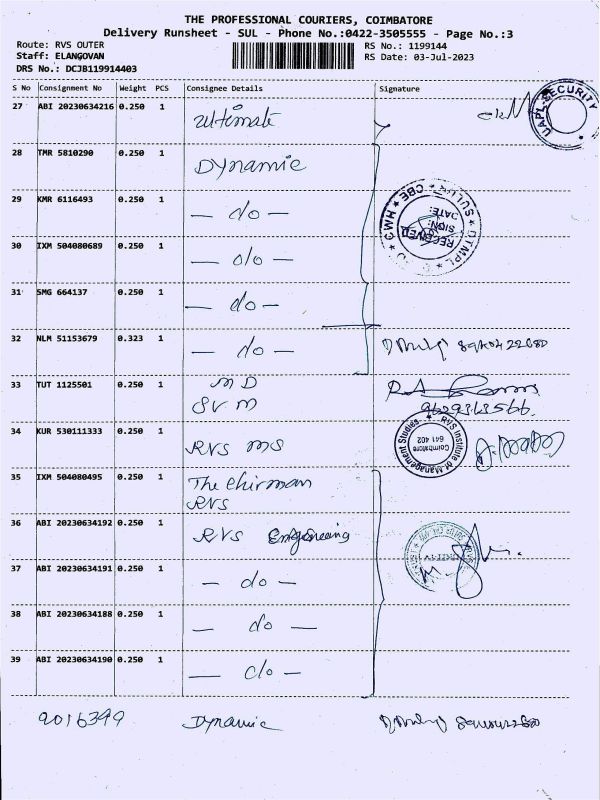 THE PROFESSIONAL COURIERS, COIMBATORE
Delivery Runsheet - SUL - Phone No.:0422-3505555 - Page No.:3
Route: RVS OUTER RS No.: 1199144
Staff: ELANGOVAN RS Date: 03-Jul-2023
DRS No.: DCJB119914403
S No Consignment No Weight PCS Consignee Details Signature
27 ABI 20230634216 0.250 1 Ultimate
UAPL-SECURITY
28 TMR 5810290 0.250 1 Dynamic
29 KMR 6116493 0.250 1 — do —
CWH ★ CBE ★ SULUR ★ DTMPL ★
RECEIVED
SIGN:
DATE:
30 IXM 504080689 0.250 1 — do —
31 SMG 664137 0.250 1 — do —
32 NLM 51153679 0.323 1 — do —
33 TUT 1125501 0.250 1 M D
SVM
9629363566.
34 KUR 530111333 0.250 1 RVS MS
RVS Institute of Management Studies
Coimbatore
641 402
35 IXM 504080495 0.250 1 The Chirman
RVS
36 ABI 20230634192 0.250 1 RVS Engineering
37 ABI 20230634191 0.250 1 — do —
38 ABI 20230634188 0.250 1 — do —
39 ABI 20230634190 0.250 1 — do —
9016349 Dynamic